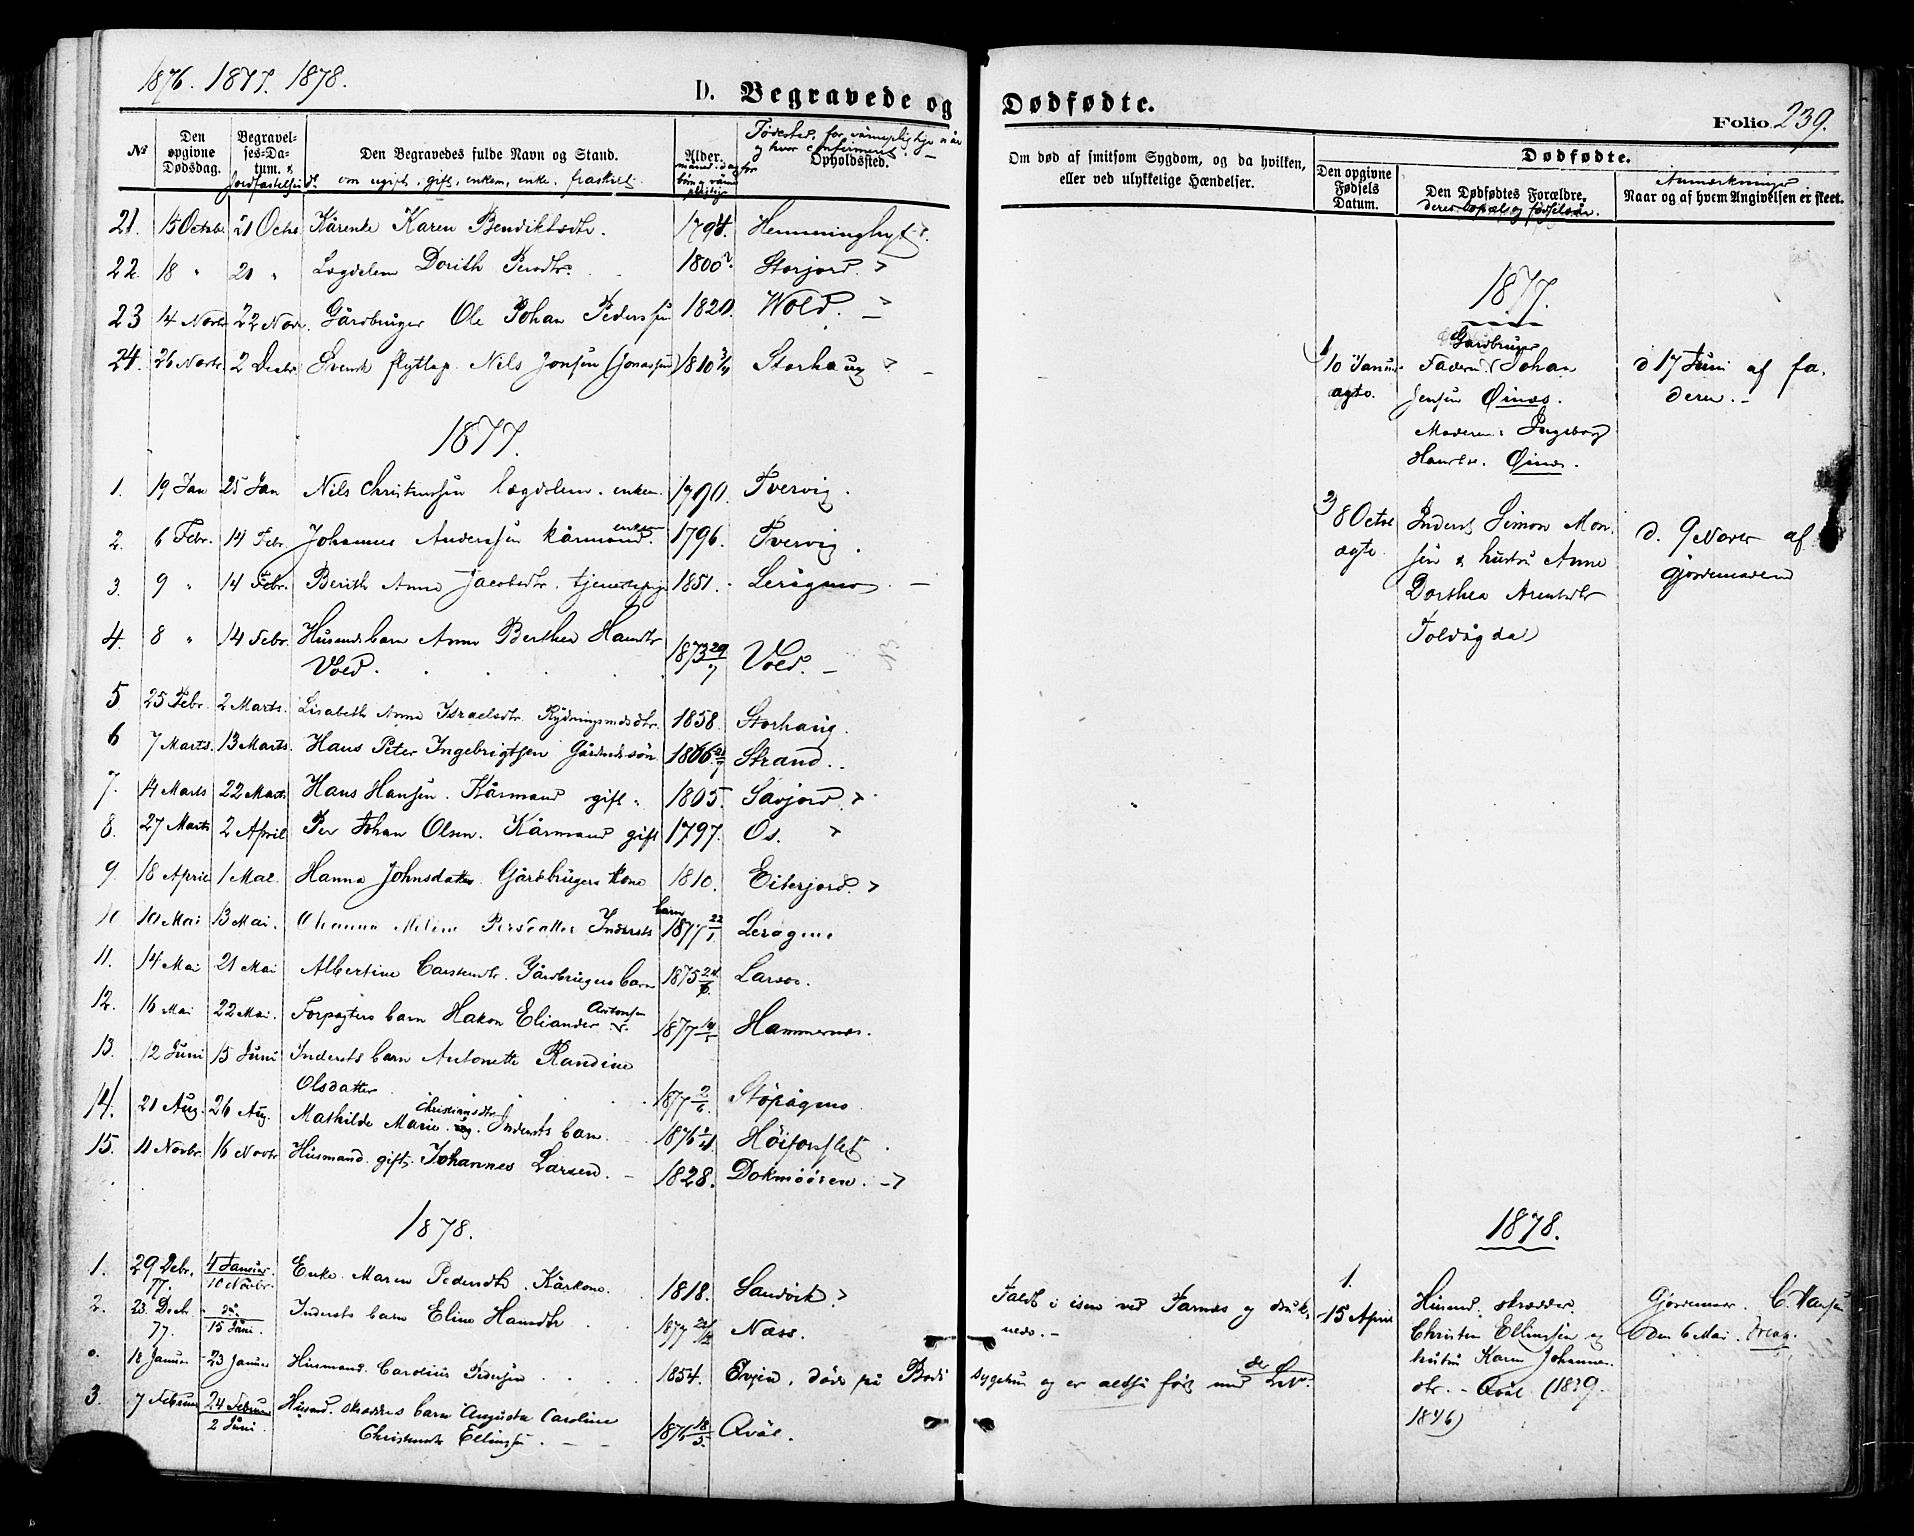 1876. 1877. 1878.
D. Begravede og Dødfødte.
Folio 239.
No
Den opgivne Dødsdag.
Begravelses-Datum. &
Den Begravedes fulde Navn og Stand.
om ugift, gift, enkem, enke, fraskilt.
Alder.
Fødested, for
og hvor confirmeret.
Opholdssted.
Om død af smitsom Sygdom, og da hvilken,
eller ved ulykkelige Hændelser.
Dødfødte.
Den opgivne Fødsels Datum.
Den Dødfødtes Forældre.
deres bopæl og fødselsår.
Anmærkninger
Naar og af hvem Angivelsen er skeet.
21. 15 Octbr 21 Octb Kårenke Karen Bendiktsdtr. 1794. Hemminghyt
22 18 " 21 " Lægdslem Dorith Persdtr. 1800 Storjord.
23 14 Novbr 22 Novbr. Gårdbruger Ole Johan Pedersen 1820. Wold.
24. 26 Novbr 2 Decbr. Svensk flytlap Nils Jonsen (Jonassen) 1810 Storhaug
1877.
1. 19 Jan 25 Jan Nils Christensen lægdslem. enkem. 1790. Tvervig.
2. 6 Febr. 14 Febr. Johannes Anderssen kårmand. enkem 1796. Tvervig.
3. 9 " 14 Febr. Berith Anna Jacobsdtr. tjenestepige 1851. Leirågmo
4. 8 " 14 Febr. Husmdsbarn Anne Berthea Hansdtr
Vold. 1873 29/7 Vold.
5 25 Febr. 2 Marts. Lisabeth Anna Israelsdtr Rydningsmdsdtr. 1858. Storhaug.
6 7 Marts. 13 Marts. Hans Peter Ingebrigtsen Gårdmdssön 1866 Strand.
7. 14 Marts 22 Marts. Hans Hansen. Kårmand gift. 1805. Savjord.
8. 27 Marts 2 April Per Johan Olsen. Kårmand gift 1797. Os.
9. 18 April 1 Mai. Hanna Johnsdatter. Gårdbrugers Kone 1810. Eiterjord.
10 10 Mai 13 Mai. Ohanna Meline Persdatter Indersts barn 1877 22/1 Leragmo
11. 14 Mai 21 Mai Albertine Carstensdtr. Gårdbrugers barn 1875 Larsos.
12. 16 Mai 22 Mai. Forpagters barn Hakon Eliander Antonsen 1877 Hammernæs.
13. 12 Juni 15 Juni Inderststs barn Antonette Randine
Olsdatter 1877 2/6 Støvågmo
14. 21 Aug. 26 Aug. Mathilde Marie Christiansdtr Inderststs barn. 1876 Höiforslet.
15. 11 Novbr. 16 Novbr Husmand. gift. Johannes Larsen. 1828. Dokmoören.
1878.
1. 29 Debr. 77. 4 Januar. 10 Novbr. Enke. Maren Pedersdtr. Kårkone. 1818. Sandvik.
2. 23. Decb. 77. do. 15 Juni. Inderststs barn Eline Hansdtr 1877 Næss.
Faldt i isen ved Farnæs og druk-
nede.
0. 18 Januar 23 Januar Husmand. Carolius Pedersen 1854. Evjen, döde på Bodö
sygehus og er altså fört med der
3. 7 Februar 24 Februar 2 Juni. Husmd. skrædders barn Augusta Caroline
Christensdtr Ellingsen. 1876 18/5. Qvål.
1877.
1) 10 Januar ægte.
Gårdbruger
Faderen: Johan
Jensen Øinæs.
Moderen: Ingeborg
Hansdtr. Øinæs.
d 17 Juni af fa-
deren.
2) 8 Octbr ægte.
Inderst Simon Mon-
sen & hustru Anne
Dorthea Arentsdtr
Toldågdal
d. 9 Novbr af
Gjordemoderen
1878.
1.
15 April
Husmd. skrædder.
Christen Ellingsen og
hustru Karen Johannes-
dtr. Qvål (1839.
1846)
Gjordemoder. C. Hansen
den 6 Mai.